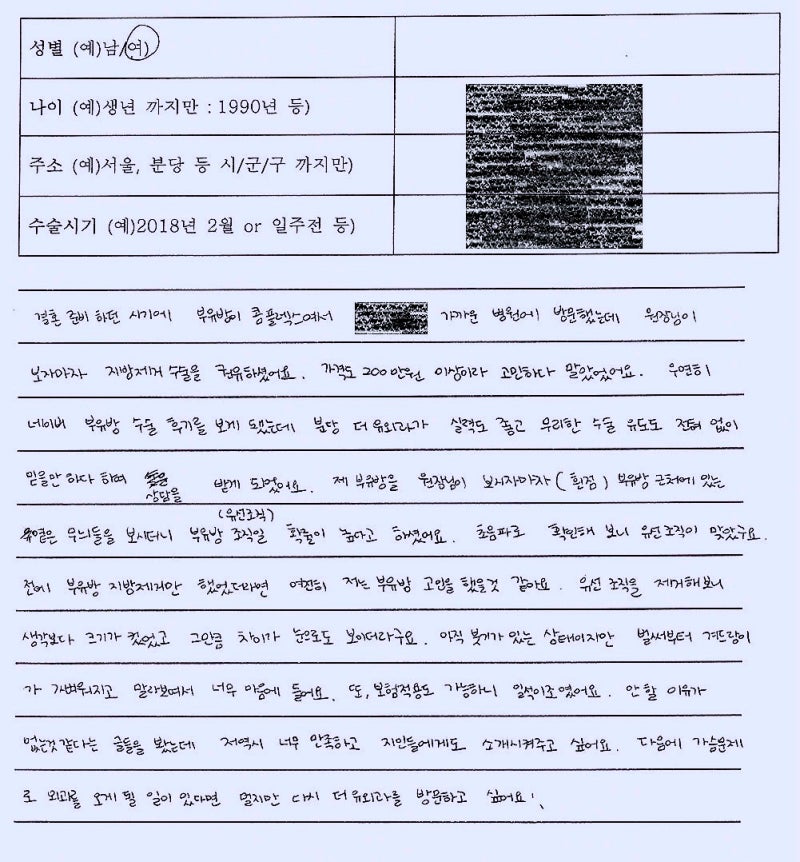 성별 (예)남/여)
나이 (예)생년 까지만 : 1990년 등)
주소 (예)서울, 분당 등 시/군/구 까지만)
수술시기 (예)2018년 2월 or 일주전 등)
결혼 준비 하던 시기에 부유방이 콤플렉스여서 가까운 병원에 방문했는데 원장님이
보자마자 지방제거 수술을 권유하셨어요. 가격도 200만원 이상이라 고민하다 말았었어요. 우연히
네이버 부유방 수술 후기를 보게 됐는데 분당 더유외과가 실력도 좋고 무리한 수술 유도도 전혀 없이
믿을만 하다 하여 상담을 받게 되었어요. 제 부유방을 원장님이 보시자마자 (흰점) 부유방 근처에 있는
옅은 무늬들을 보시더니 부유방 조직일 (유선조직) 확률이 높다고 하셨어요. 초음파로 확인해 보니 유선조직이 맞았구요.
전에 부유방 지방제거만 했었더라면 여전히 저는 부유방 고민을 했을것 같아요. 유선 조직을 제거해보니
생각보다 크기가 컸었고 그만큼 차이가 눈으로도 보이더라구요. 아직 붓기가 있는 상태이지만 벌써부터 겨드랑이
가 가벼워지고 말라보여서 너무 마음에 들어요. 또, 보험적용도 가능하니 일석이조였어요. 안할 이유가
없는것 같다는 글들을 봤는데 저역시 너무 만족하고 지인들에게도 소개시켜주고 싶어요. 다음에 가슴문제
로 외과를 오게 될 일이 있다면 멀지만 다시 더유외과를 방문하고 싶어요!